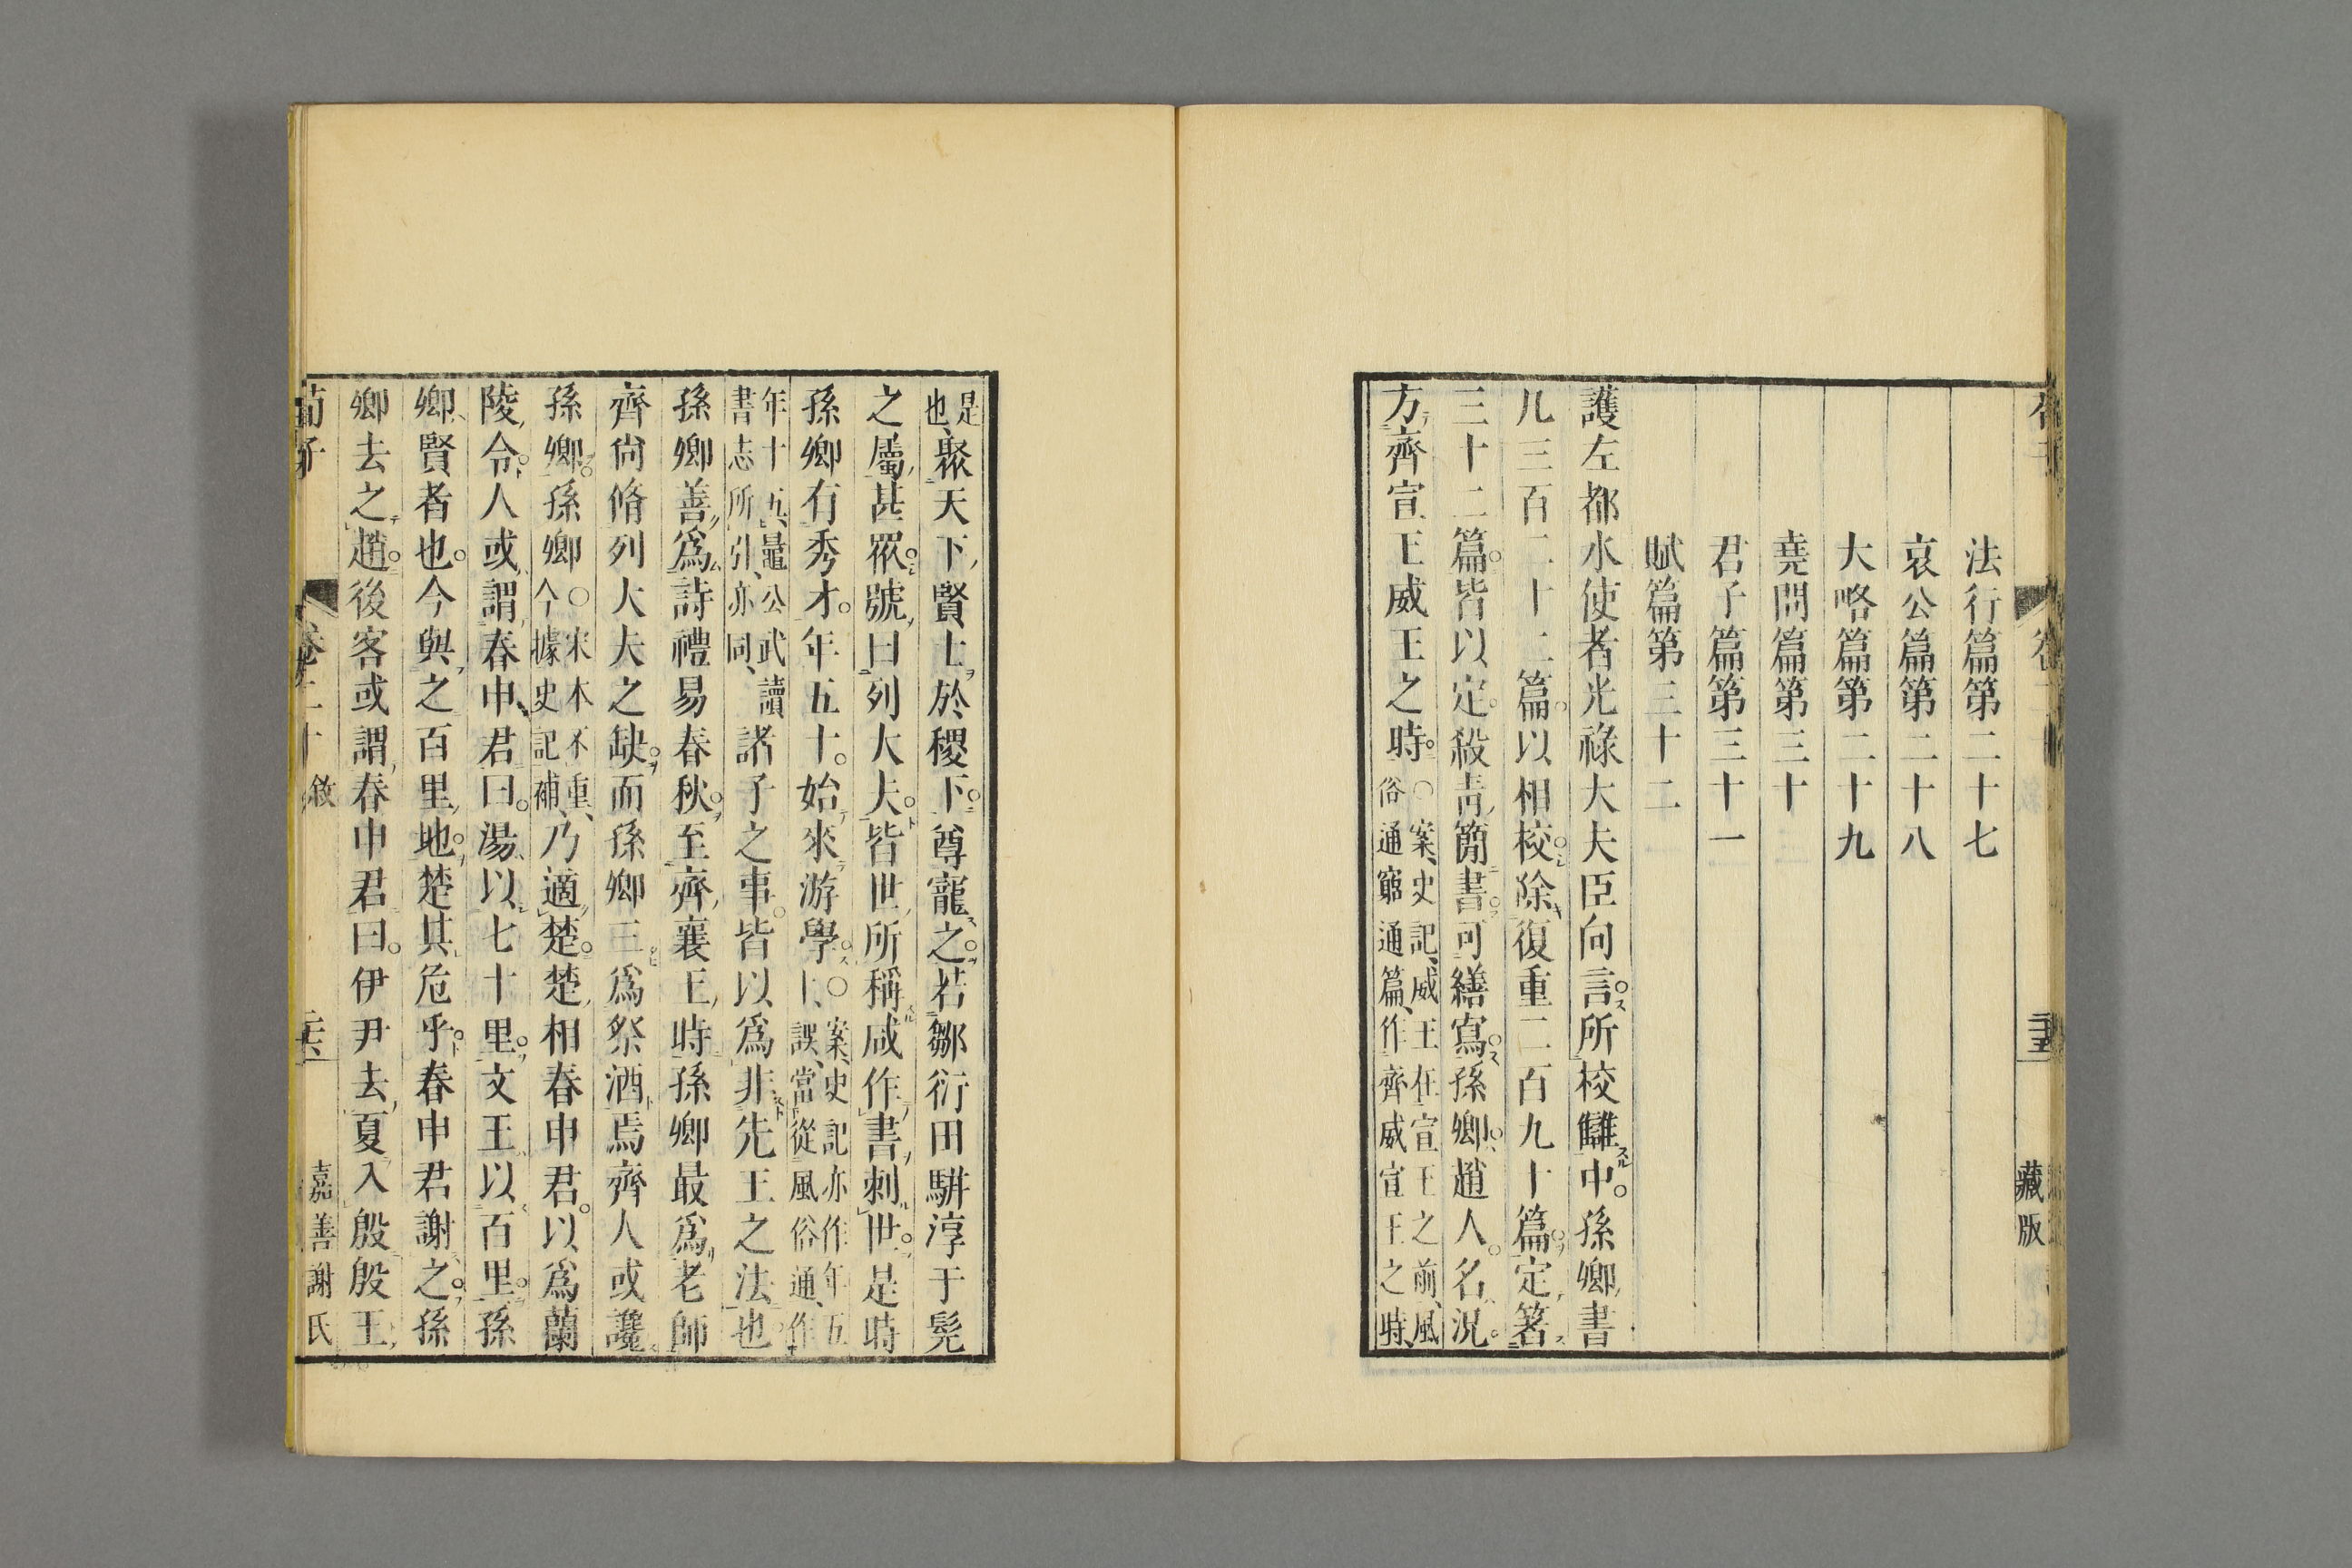 法行篇第二十七
哀公篇第二十八
大略篇第二十九
堯問篇第三十
君子篇第三十一
賦篇第三十二
護左都水使者光祿大夫臣向言所校讎中孫卿書
凡三百二十二篇以相校除復重二百九十篇定著
三十二篇皆以定殺青簡書可繕寫孫卿趙人名況
方齊宣王威王之時○案史記威王在宣王之前風俗通窮通篇作齊威宣王之時
藏版
是也聚天下賢士於稷下尊寵之若鄒衍田駢淳于髡
之屬甚眾號曰列大夫皆世所稱咸作書刺世是時
孫卿有秀才年五十始來游學○案史記亦作年五十誤當從風俗通作
年十五鼂公武讀書志所引亦同諸子之事皆以爲非先王之法也
孫卿善爲詩禮易春秋至齊襄王時孫卿最爲老師
齊尙脩列大夫之缺而孫卿三爲祭酒焉齊人或讒
孫卿孫卿○宋本不重今據史記補乃適楚楚相春申君以爲蘭
陵令人或謂春申君曰湯以七十里文王以百里孫
卿賢者也今與之百里地楚其危乎春申君謝之孫
卿去之趙後客或謂春申君曰伊尹去夏入殷殷王
荀子 卷二十 敘 二六 嘉善謝氏